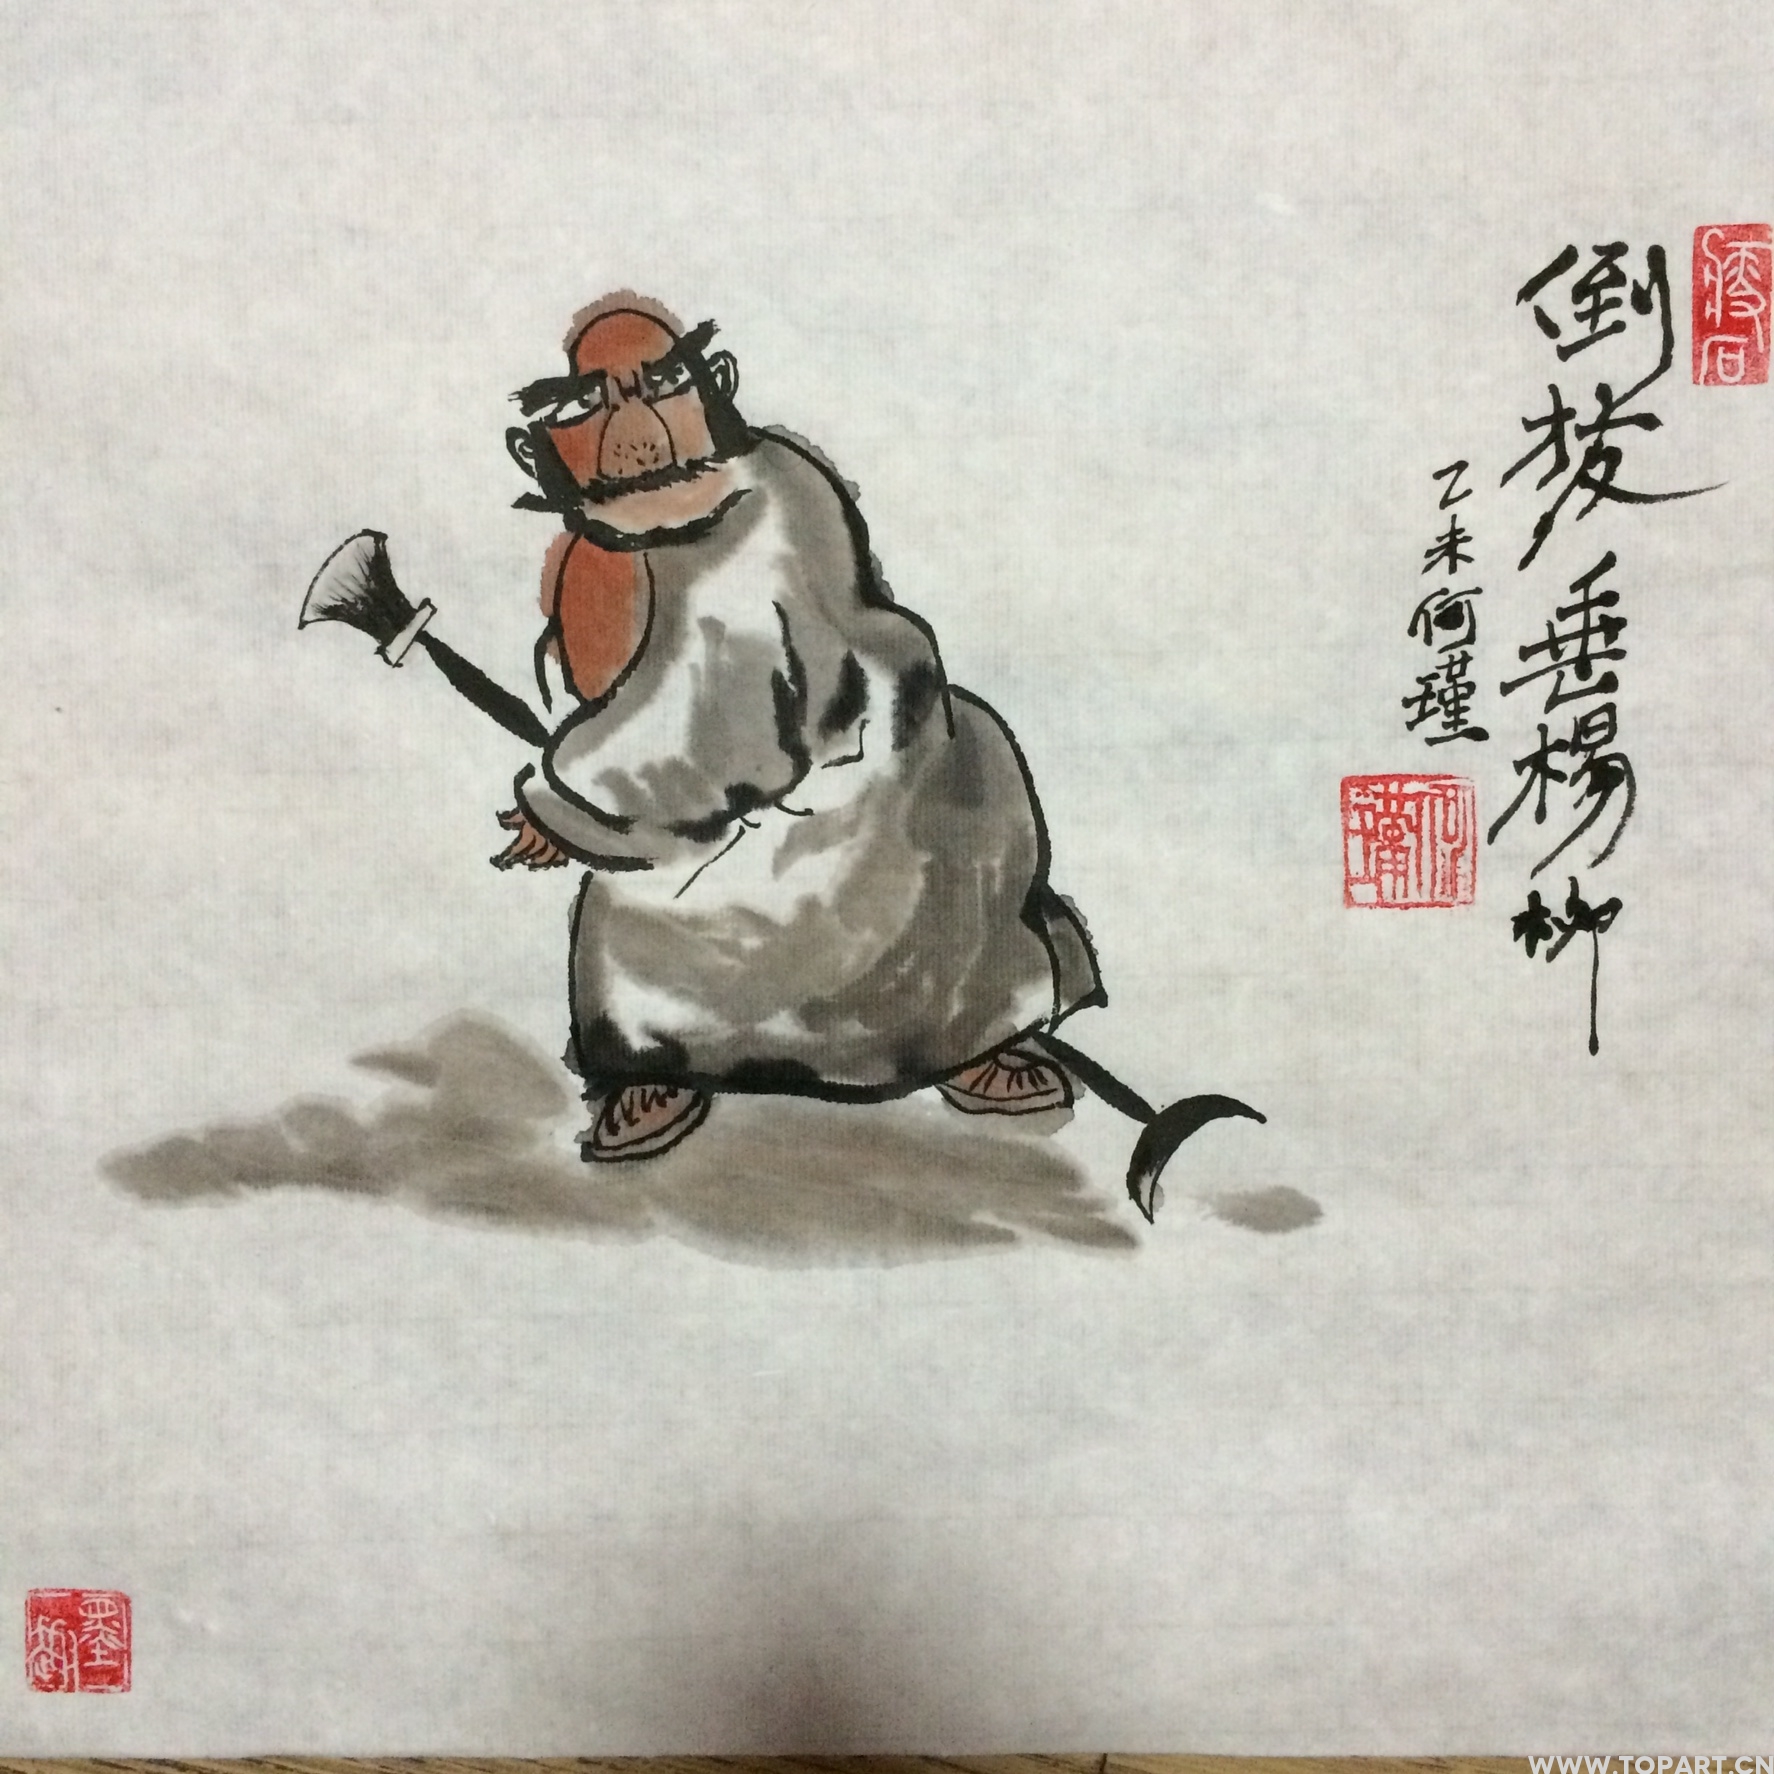 倒拔垂楊柳
乙未何瑾
WWW.TOPART.CN